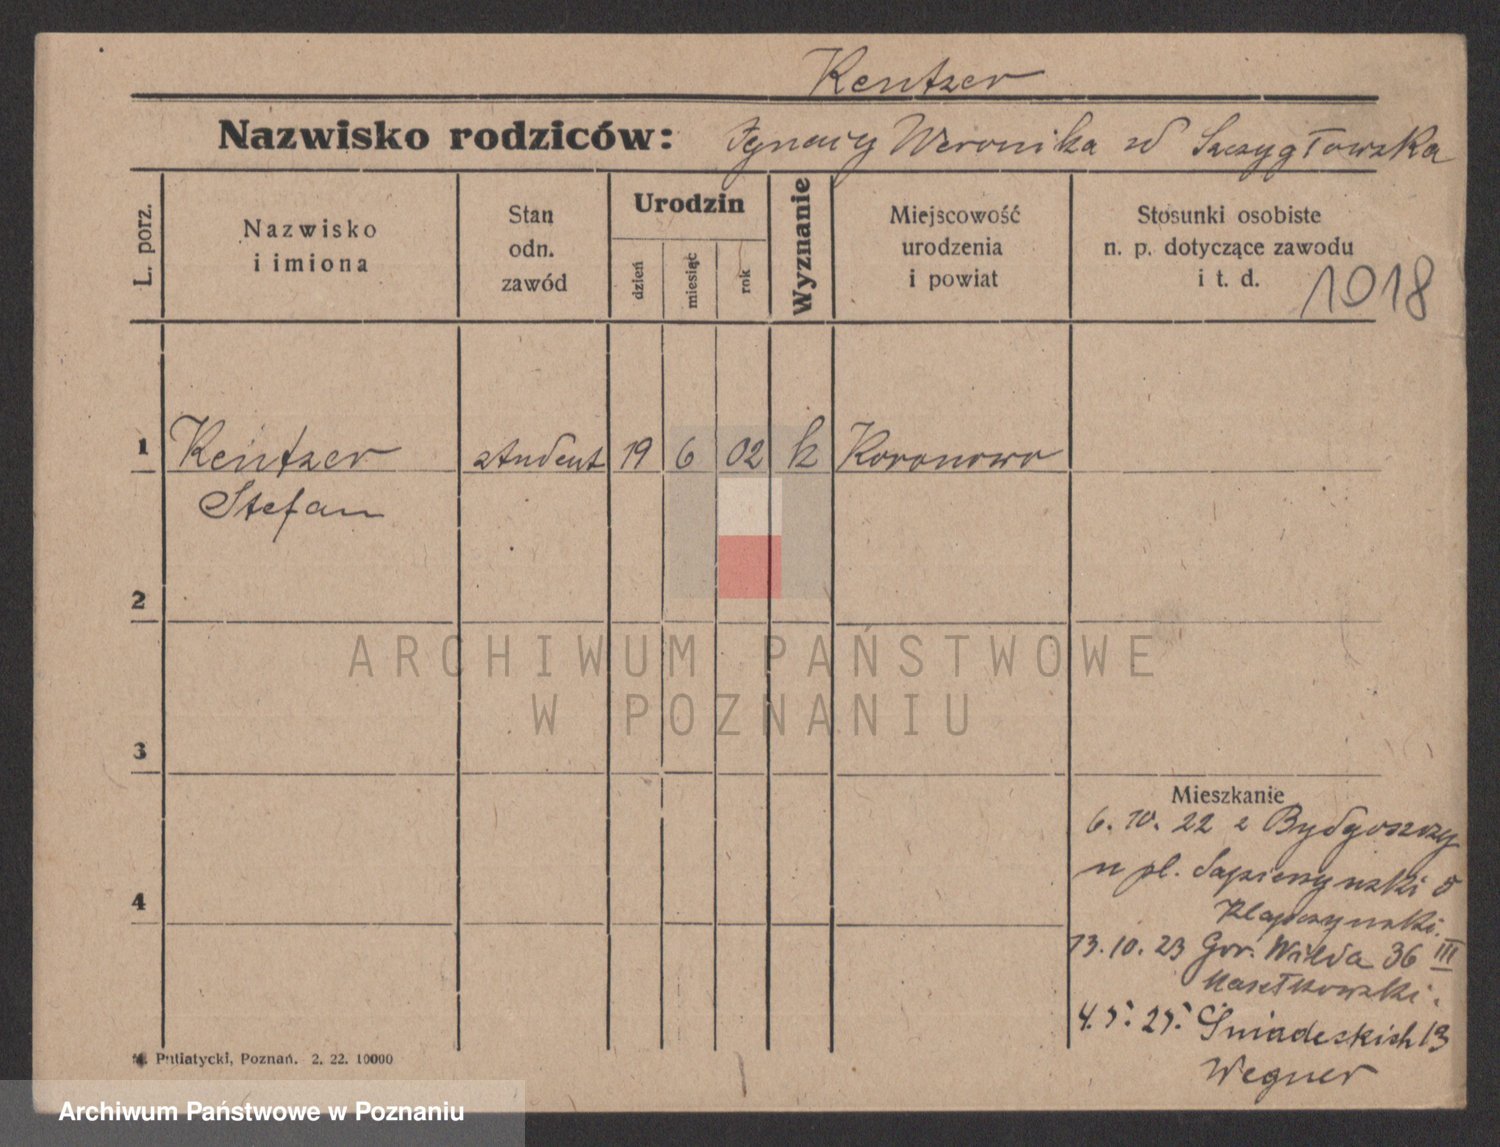 Kentzer
Nazwisko rodziców: Ignacy Weronika zd Szczygłowska
L. porz.
Nazwisko
i imiona
Stan
odn.
zawód
Urodzin
dzień
miesiąc
rok
Wyznanie
Miejscowość
urodzenia
i powiat
Stosunki osobiste
n. p. dotyczące zawodu
i t. d.
1018
1 Kentzer student 19 6 02 k Koronowo
Stefan
2
3
4
ARCHIWUM PAŃSTWOWE
W POZNANIU
Mieszkanie
6. 10. 22 z Bydgoszczy
pl. Sapieżyński 5
13. 10. 23 Gór. Wilda 36 III
4. 5. 25. Śniadeckich 13
Wegner
Putiatycki, Poznań. 2. 22. 10000
Archiwum Państwowe w Poznaniu